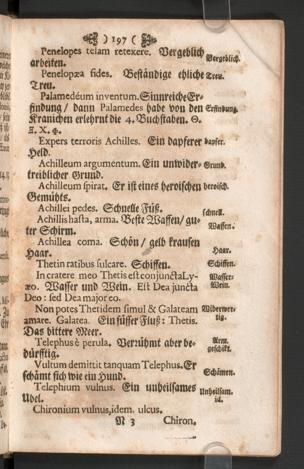 ) 197 (
Penelopes telam retexere. Vergeblich Vergeblich.
arbeiten.
Penelopæa fides. Beständige ehliche Treu.
Treu.
Palamedéum inventum. Sinnreiche Er-
findung / dann Palamedes habe von den Erfindung.
Kranichen erlehrnt die 4. Buchstaben. Θ.
Ξ. X. Φ.
Expers terroris Achilles. Ein dapferer dapfer.
Held.
Achilleum argumentum. Ein unwider- Grund.
treiblicher Grund.
Achilleum spirat. Er ist eines heroischen heroisch.
Gemühts.
Achillei pedes. Schnelle Füß. schnell.
Achillis hasta, arma. Beste Waffen / gu- Waffen.
ter Schirm.
Achillea coma. Schön / gelb krausen Haar.
Haar.
Thetin ratibus sulcare. Schiffen. Schiffen.
In cratere meo Thetis est conjuncta Ly- Wasser-
æo. Wasser und Wein. Est Dea juncta Wein.
Deo: sed Dea major eo.
Non potes Thetidem simul & Galateam Widerwer-
amare. Galatea. Ein süsser Fluß: Thetis. tig.
Das bittere Meer.
Telephus è perula. Verrühmt aber be- Arm.
dürfftig. geschikt.
Vultum demittit tanquam Telephus. Er Schämen.
schämt sich wie ein Hund.
Telephium vulnus. Ein unheilsames Unheilsam.
Ubel.
Chironium vulnus, idem. ulcus.
N 3 Chiron,